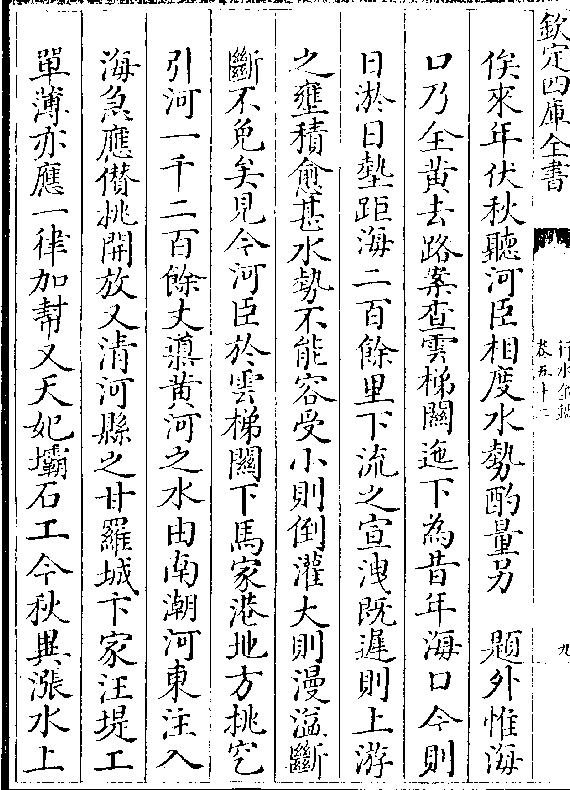 欽定四庫全書
行水金鑑
卷五十二
九
俟來年伏秋聽河臣相度水勢酌量另　題外惟海
口乃全黃去路案查雲梯關迤下為昔年海口今則
日淤日墊距海二百餘里下流之宣洩既遲則上游
之壅積愈甚水勢不能容受小則倒灌大則漫溢斷
斷不免矣見今河臣於雲梯關下馬家港地方挑空
引河一千二百餘丈導黃河之水由南潮河東注入
海急應儹挑開放又清河縣之甘羅城卞家汪堤工
單薄亦應一律加幫又天妃壩石工今秋異漲水上